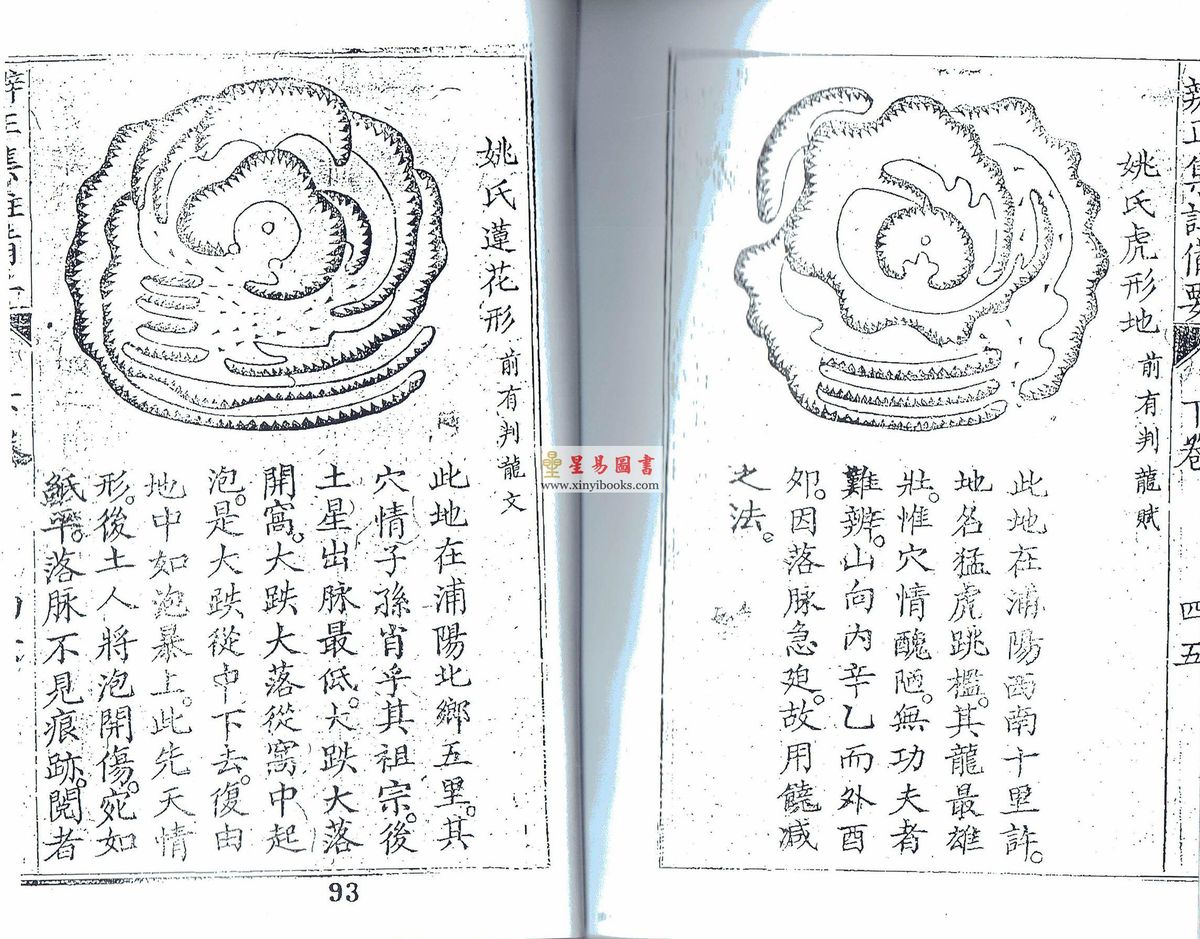 辨正集註備要
下卷
四五
姚氏虎形地 前有判龍賦
此地在浦陽西南十里許。
地名猛虎跳檻。其龍最雄
壯。惟穴情醜陋。無功夫者
難辨。山向內辛乙而外酉
夘。因落脉急廹。故用饒减
之法。
姚氏蓮花形 前有判龍文
此地在浦陽北鄉五里。其
穴情子孫肖乎其祖宗。後
土星出脉最低。大跌大落
開窩。大跌大落從窩中起
泡。是大跌從中下去。復由
地中如泡暴上。此先天情
形。後土人將泡開傷。宛如
紙平。落脉不見痕跡。閱者
93
星易圖書
www.xinyibooks.com